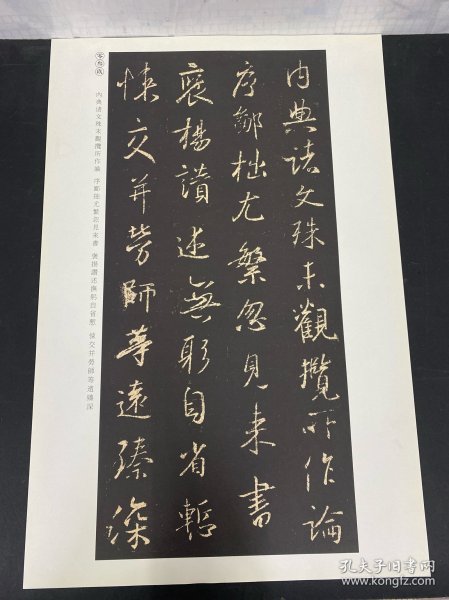 内典諸文殊未觀攬所作論
序鄙拙尤繁忽見來書
褒揚讃述撫躬自省慙
悚交并勞師等遠臻深
内典諸文殊未觀攬所作論 序鄙拙尤繁忽見來書 褒揚讃述撫躬自省慙 悚交并勞師等遠臻深
孔夫子旧书网